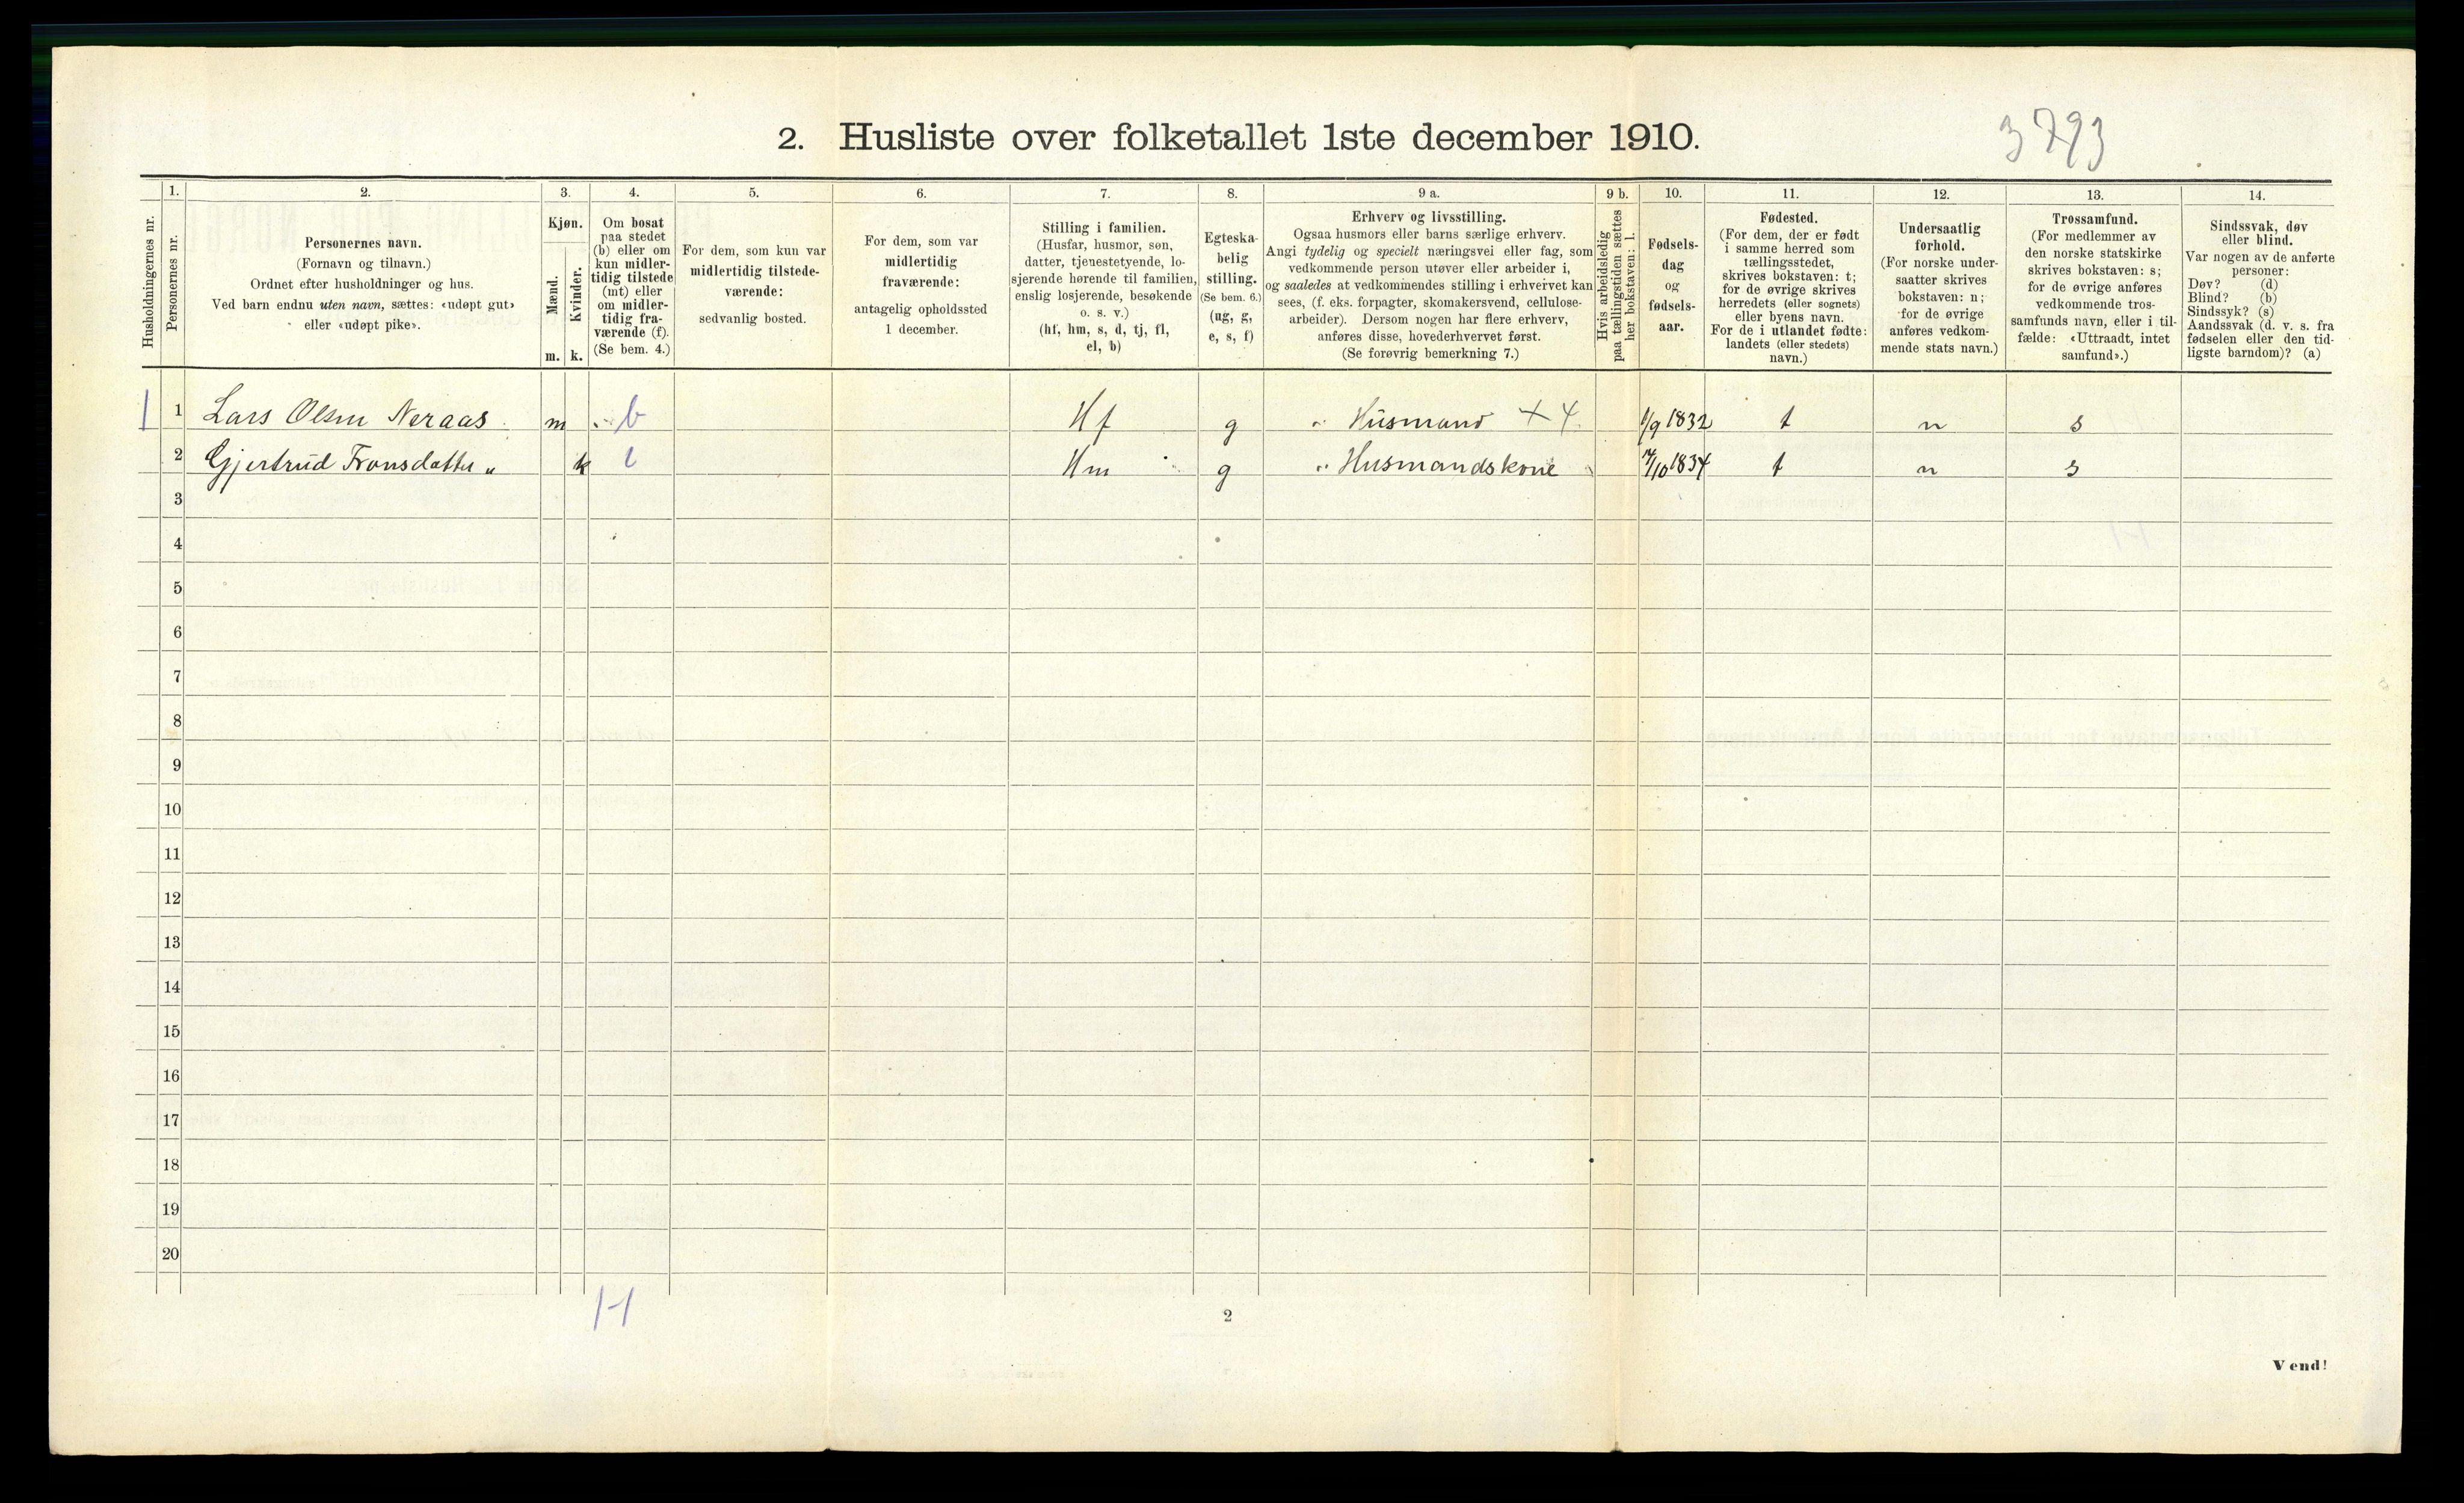 3793
2. Husliste over folketallet 1ste december 1910.
Husholdningernes nr.
1.
Personernes nr.
2.
Personernes navn.
(Fornavn og tilnavn.)
Ordnet efter husholdninger og hus.
Ved barn endnu uten navn, sættes: «udøpt gut»
eller «udøpt pike».
3.
Kjøn.
Mænd.
Kvinder.
m. k.
4.
Om bosat
paa stedet
(b) eller om
kun midler-
tidig tilstede
(mt) eller
om midler-
tidig fra-
værende (f).
(Se bem. 4.)
5.
For dem, som kun var
midlertidig tilstede-
værende:
sedvanlig bosted.
6.
For dem, som var
midlertidig
fraværende:
antagelig opholdssted
1 december.
7.
Stilling i familien.
(Husfar, husmor, søn,
datter, tjenestetyende, lo-
sjerende hørende til familien,
enslig losjerende, besøkende
o. s. v.)
(hf, hm, s, d, tj, fl,
el, b)
8.
Egteska-
belig
stilling.
(Se bem. 6.)
(ug, g,
e, s, f)
9 a.
Erhverv og livsstilling.
Ogsaa husmors eller barns særlige erhverv.
Angi tydelig og specielt næringsvei eller fag, som
vedkommende person utøver eller arbeider i,
og saaledes at vedkommendes stilling i erhvervet kan
sees, (f. eks. forpagter, skomakersvend, cellulose-
arbeider). Dersom nogen har flere erhverv,
anføres disse, hovederhvervet først.
(Se forøvrig bemerkning 7.)
9 b.
Hvis arbeidsledig
paa tællingstiden sættes
her bokstaven: l.
10.
Fødsels-
dag
og
fødsels-
aar.
11.
Fødested.
(For dem, der er født
i samme herred som
tællingsstedet,
skrives bokstaven: t;
for de øvrige skrives
herredets (eller sognets)
eller byens navn.
For de i utlandet fødte:
landets (eller stedets)
navn.)
12.
Undersaatlig
forhold.
(For norske under-
saatter skrives
bokstaven: n;
for de øvrige
anføres vedkom-
mende stats navn.)
13.
Trossamfund.
(For medlemmer av
den norske statskirke
skrives bokstaven: s;
for de øvrige anføres
vedkommende tros-
samfunds navn, eller i til-
fælde: «Uttraadt, intet
samfund».)
14.
Sindssvak, døv
eller blind.
Var nogen av de anførte
personer:
Døv? (d)
Blind? (b)
Sindssyk? (s)
Aandssvak (d. v. s. fra
fødselen eller den tid-
ligste barndom)? (a)
1 1 Lars Olsen Neraas m b Hf g Husmand + 4 1/9 1832 t n s
2 Gjertrud Fransdatter „ k Hm g Husmandskone 14/10 1834 t n s
3
4
5
6
7
8
9
10
11
12
13
14
15
16
17
18
19
20
1-1
2
Vend!